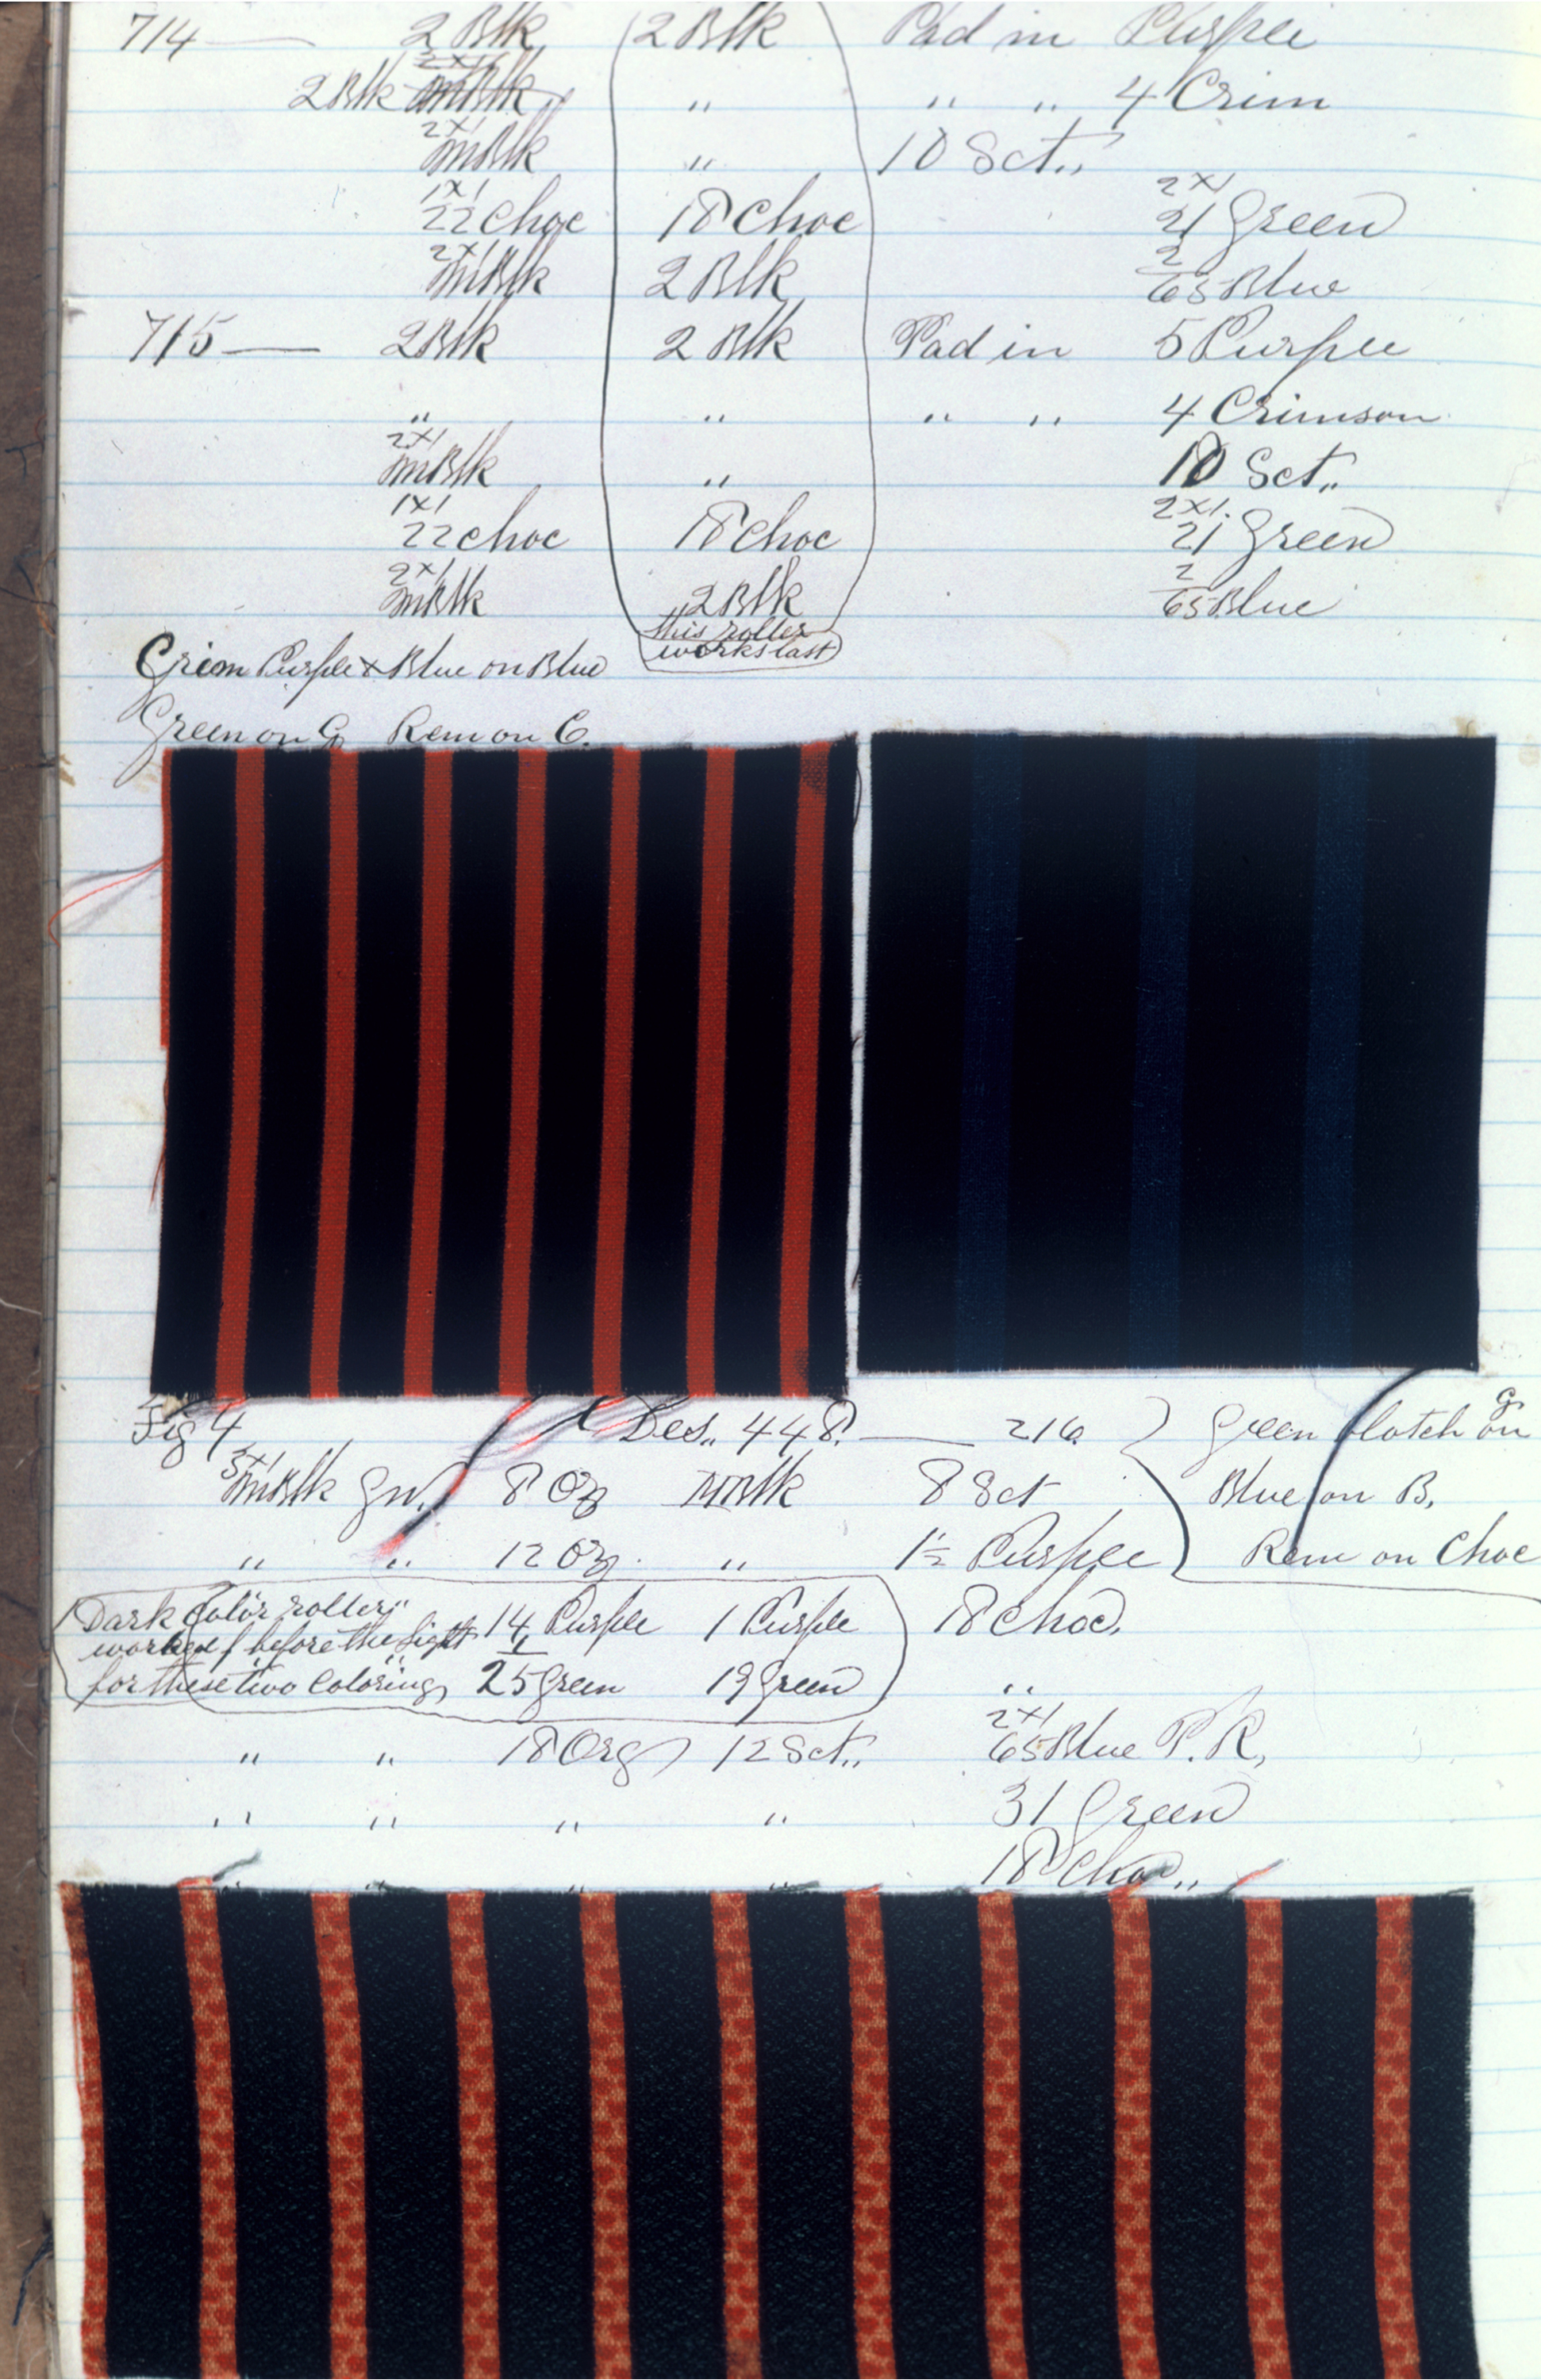 714 — 2 Blk 2 Blk Pad in Purple
2 Blk 2x1 mBlk " " " 4 Crim
2x1 mBlk " 10 Sct..
1x1 22 Choc 18 Choc 2x1 21 Green
2x1 mBlk 2 Blk 2 65 Blue
715 — 2 Blk 2 Blk Pad in 5 Purple
" " " " 4 Crimson
2x1 mBlk " 10 Sct..
1x1 22 Choc 18 Choc 2x1 21 Green
2x1 mBlk 2 Blk 2 65 Blue
this roller
works last
Crim Purple & Blue on Blue
Green on G Rem on C.
Fig 4 Des.. 448. — 216. Green blotch on G.
3x1 mBlk 8 mBlk 8 Sct Blue on B.
" " 12 " Purple Rem on Choc
Dark Color roller 14 Purple 1 Purple 18 Choc.
worked before the light
for these two Colorings 25 Green 19 Green "
" " 18 Org 12 Sct.. 2x1 65 Blue P.R.
" " " " 31 Green
" " " " 18 Choc..